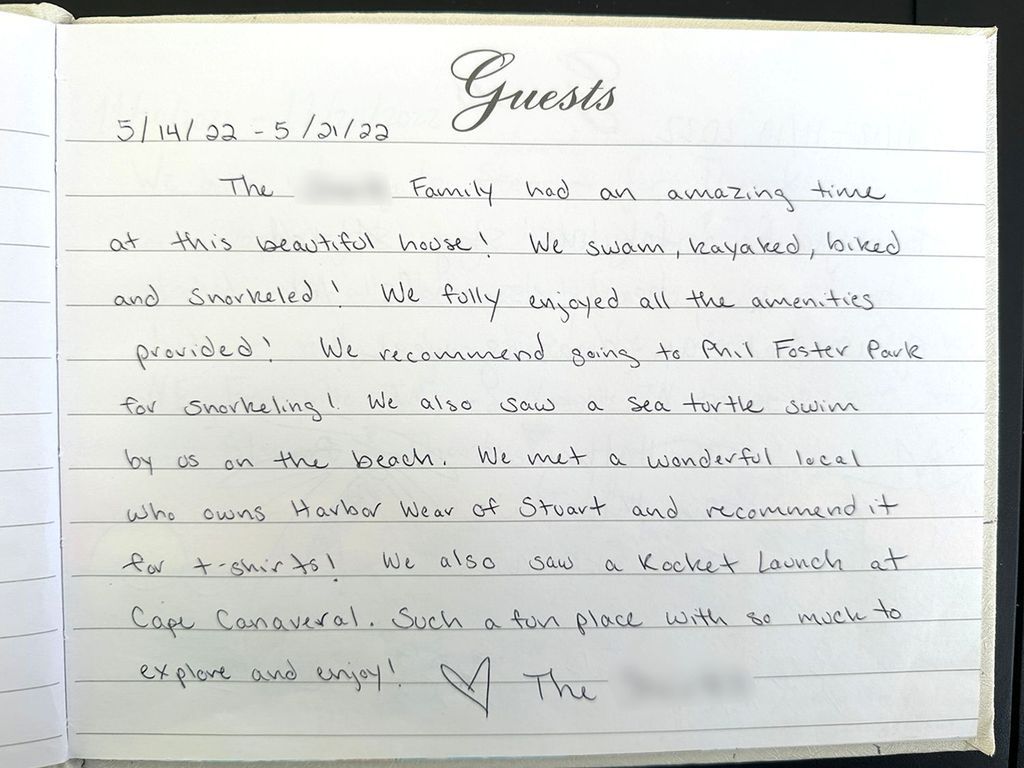 Guests
5/14/22 - 5/21/22
The Family had an amazing time
at this beautiful house! We swam, kayaked, biked
and snorkeled! We fully enjoyed all the amenities
provided! We recommend going to Phil Foster Park
for snorkeling! We also saw a sea turtle swim
by us on the beach. We met a wonderful local
who owns Harbor Wear of Stuart and recommend it
for t-shirts! We also saw a Rocket Launch at
Cape Canaveral. Such a fun place with so much to
explore and enjoy! ♡ The